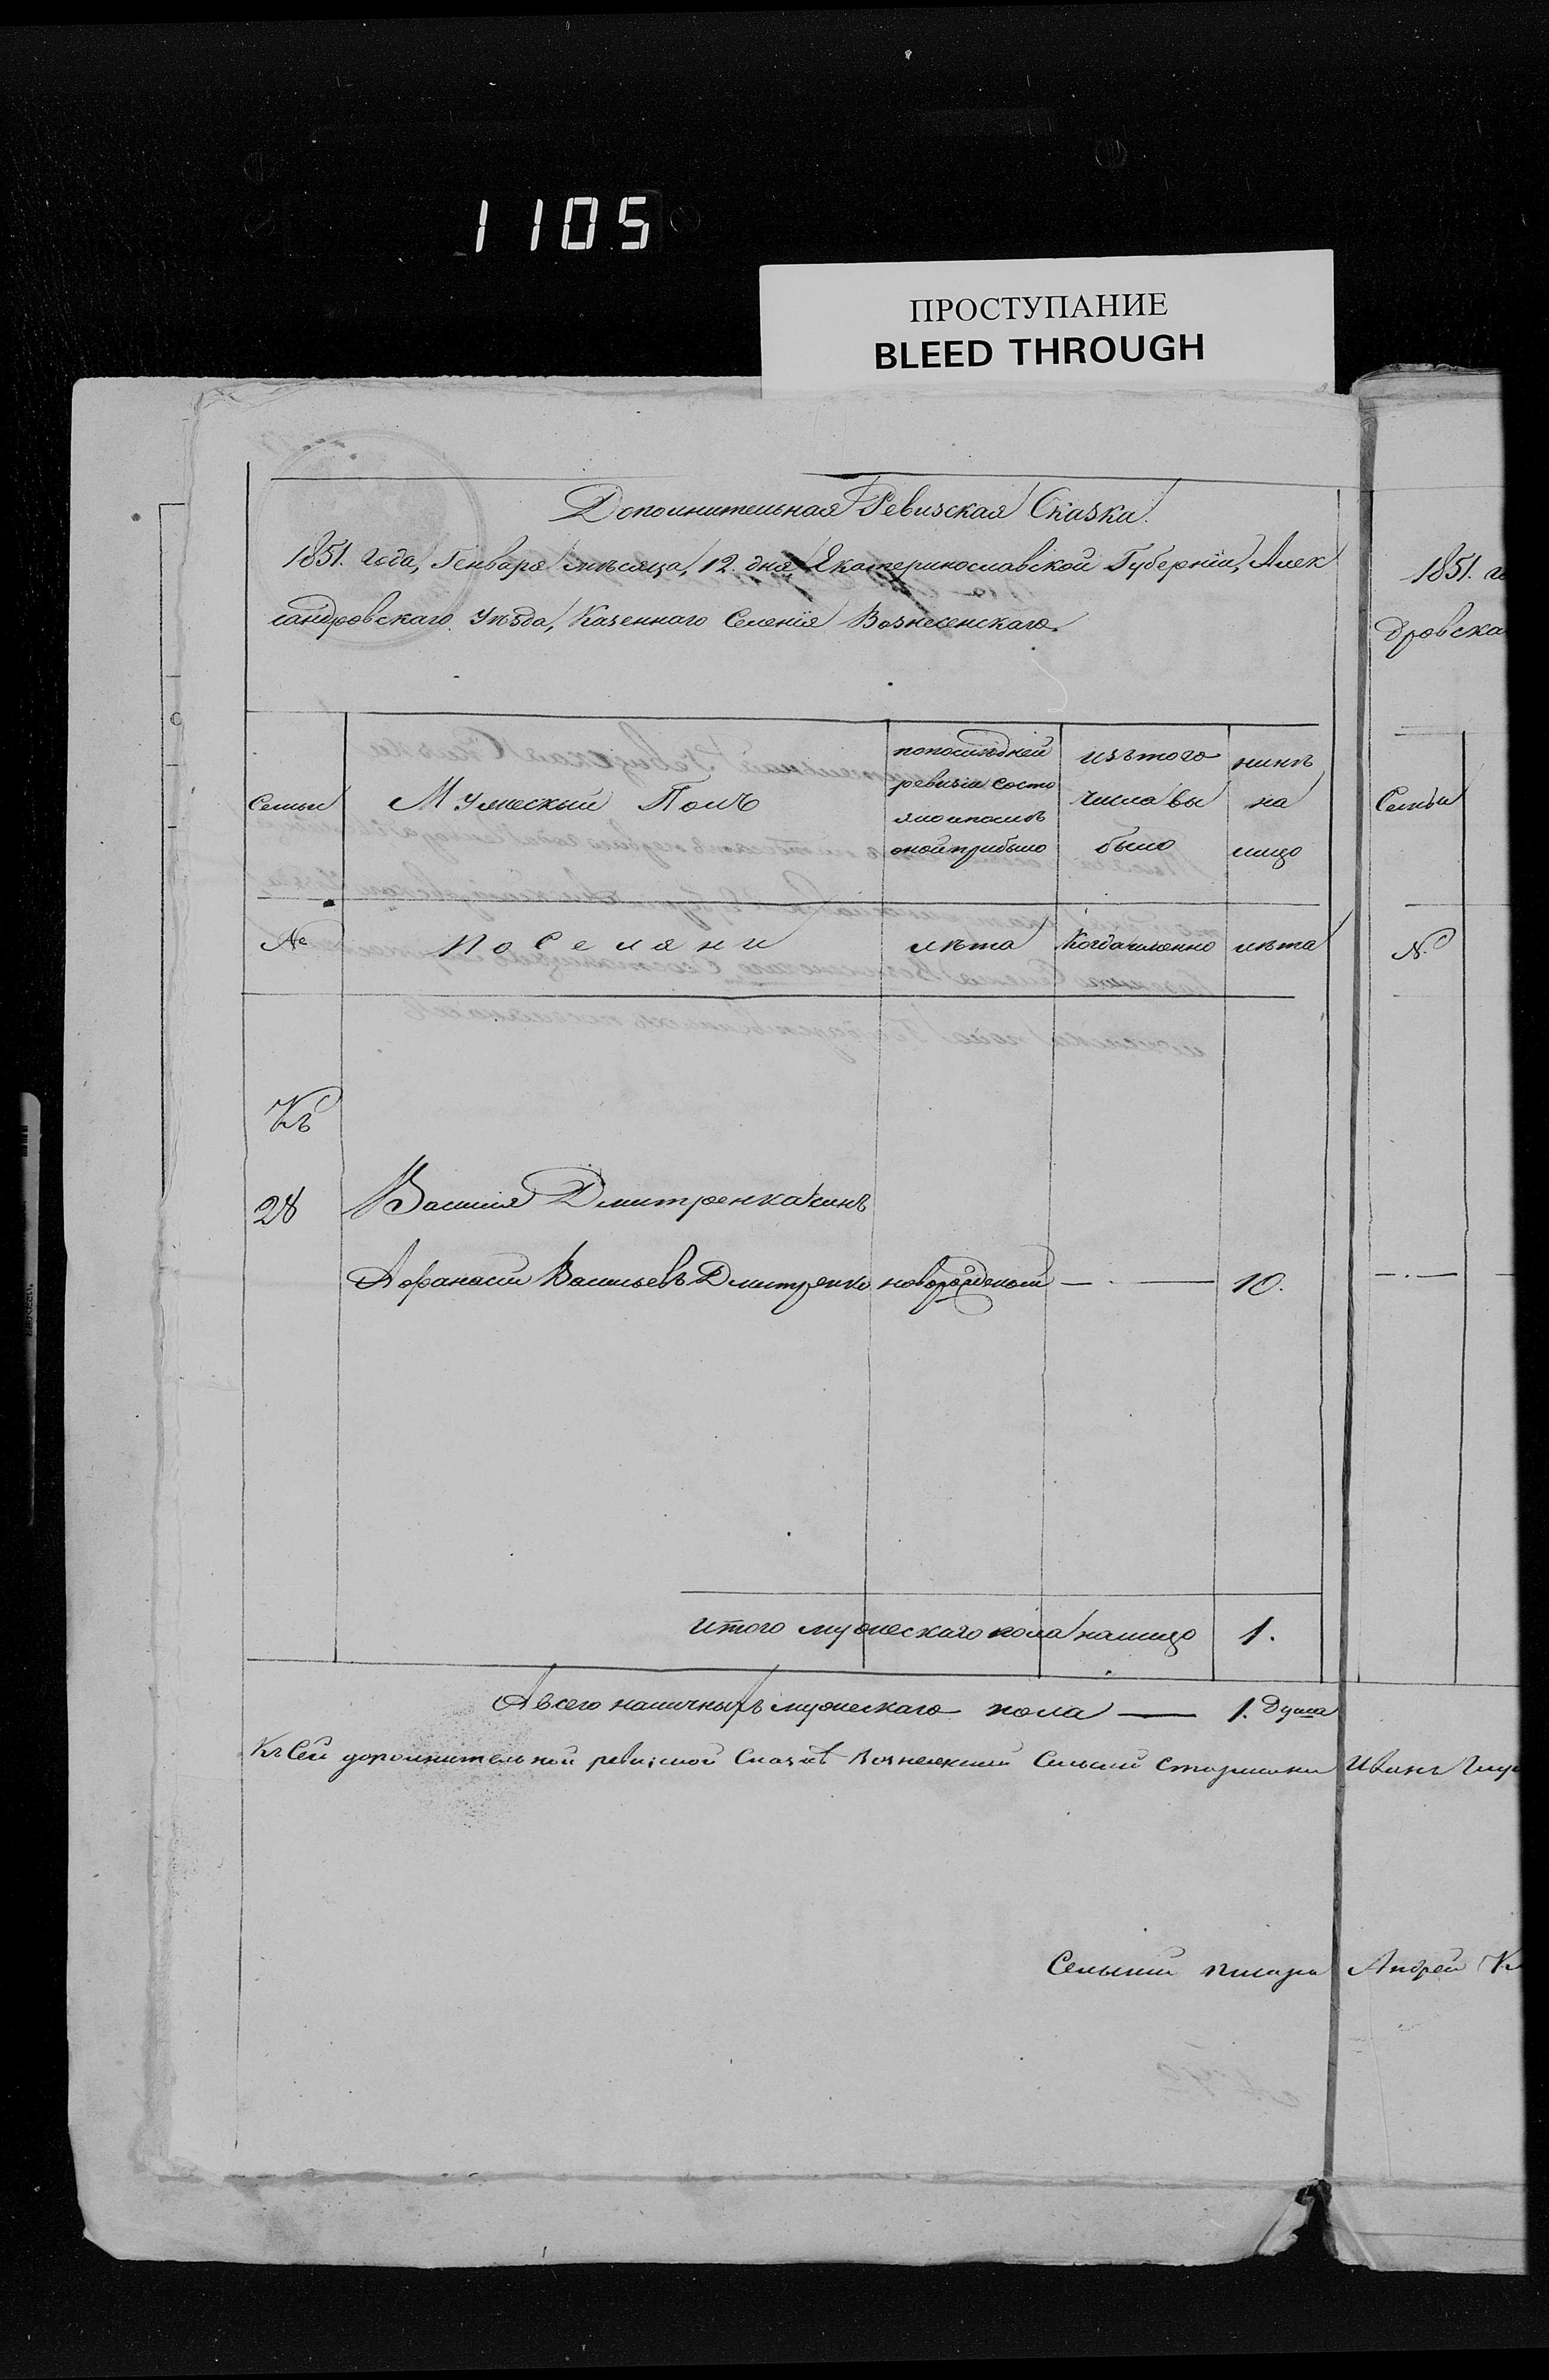 1105
ПРОСТУПАНИЕ
BLEED THROUGH
Дополнительная Ревизская Сказка.
1851. года, Генваря мѣсяца, 12. дня Екатеринославской Губерніи, Алек
сандровскаго Уѣзда, Казеннаго Селенія Вознесенскаго.
Семьи
Мужеский Полъ
по последней
ревизіи состо
яло и после
оной прибыло
изъ того
числа вы
было
нинѣ
на
лицо
№
Поселяни
лѣта
Когда именно
лѣта
Къ
28
Василія Дмитренка синъ
Афанасий Васильевъ Дмитренко новорожденый — . — 10.
итого мужескаго пола налицо 1.
А всего наличныхъ мужескаго пола — 1. душа
Къ сей дополнительной ревизской Сказкѣ Вознесенский Сельский Старшина Иванъ
Сельский писарь Андрей
1851. го
дровска
Семьи
№